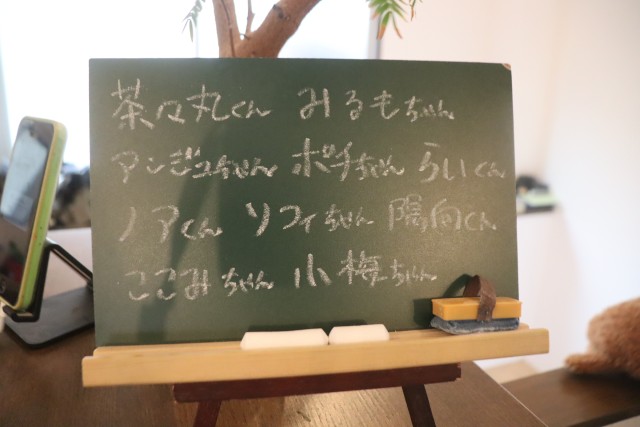 茶々丸くん みるもちゃん
アンジュちゃん ポチちゃん らいくん
ノアくん ソフィちゃん 陽向くん
ここみちゃん 小梅ちゃん